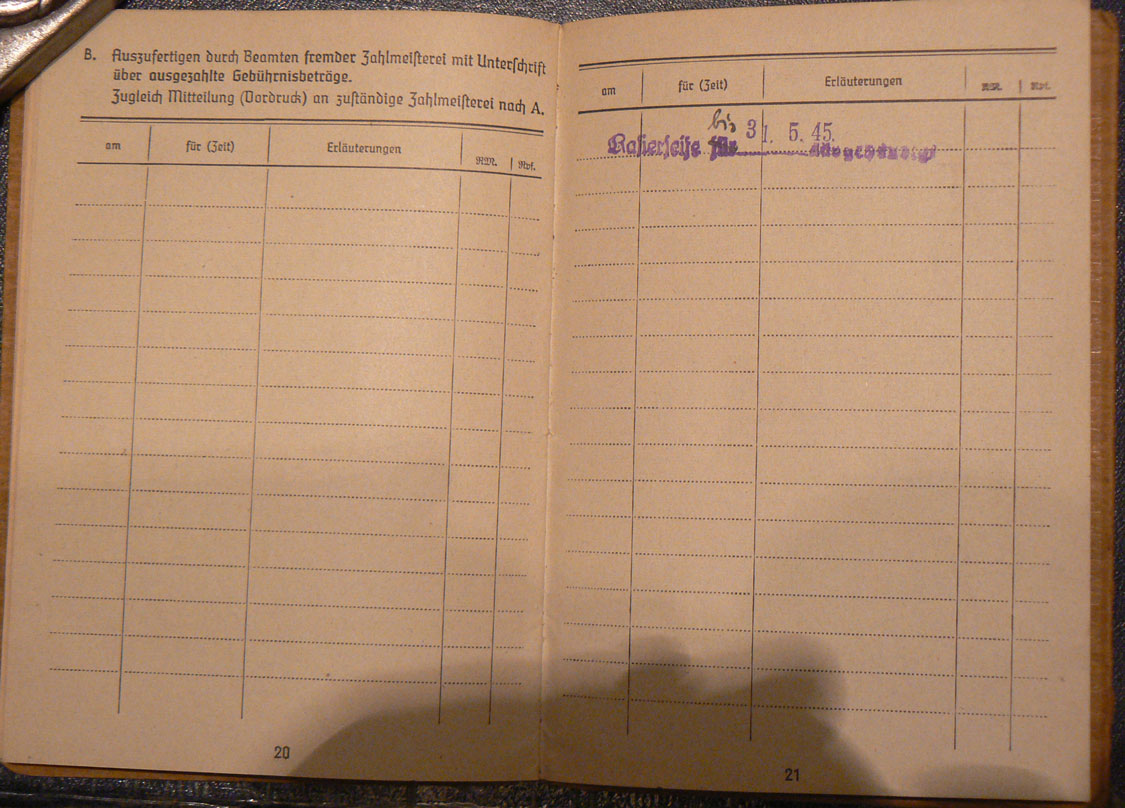 B. Auszufertigen durch Beamten fremder Zahlmeisterei mit Unterschrift
über ausgezahlte Gebührnisbeträge.
Zugleich Mitteilung (Vordruck) an zuständige Zahlmeisterei nach A.
am für (Zeit) Erläuterungen RM. Rpf.
20
am für (Zeit) Erläuterungen RM. Rpf.
bis 31. 5. 45.
Rasierseife für ausgehändigt
21